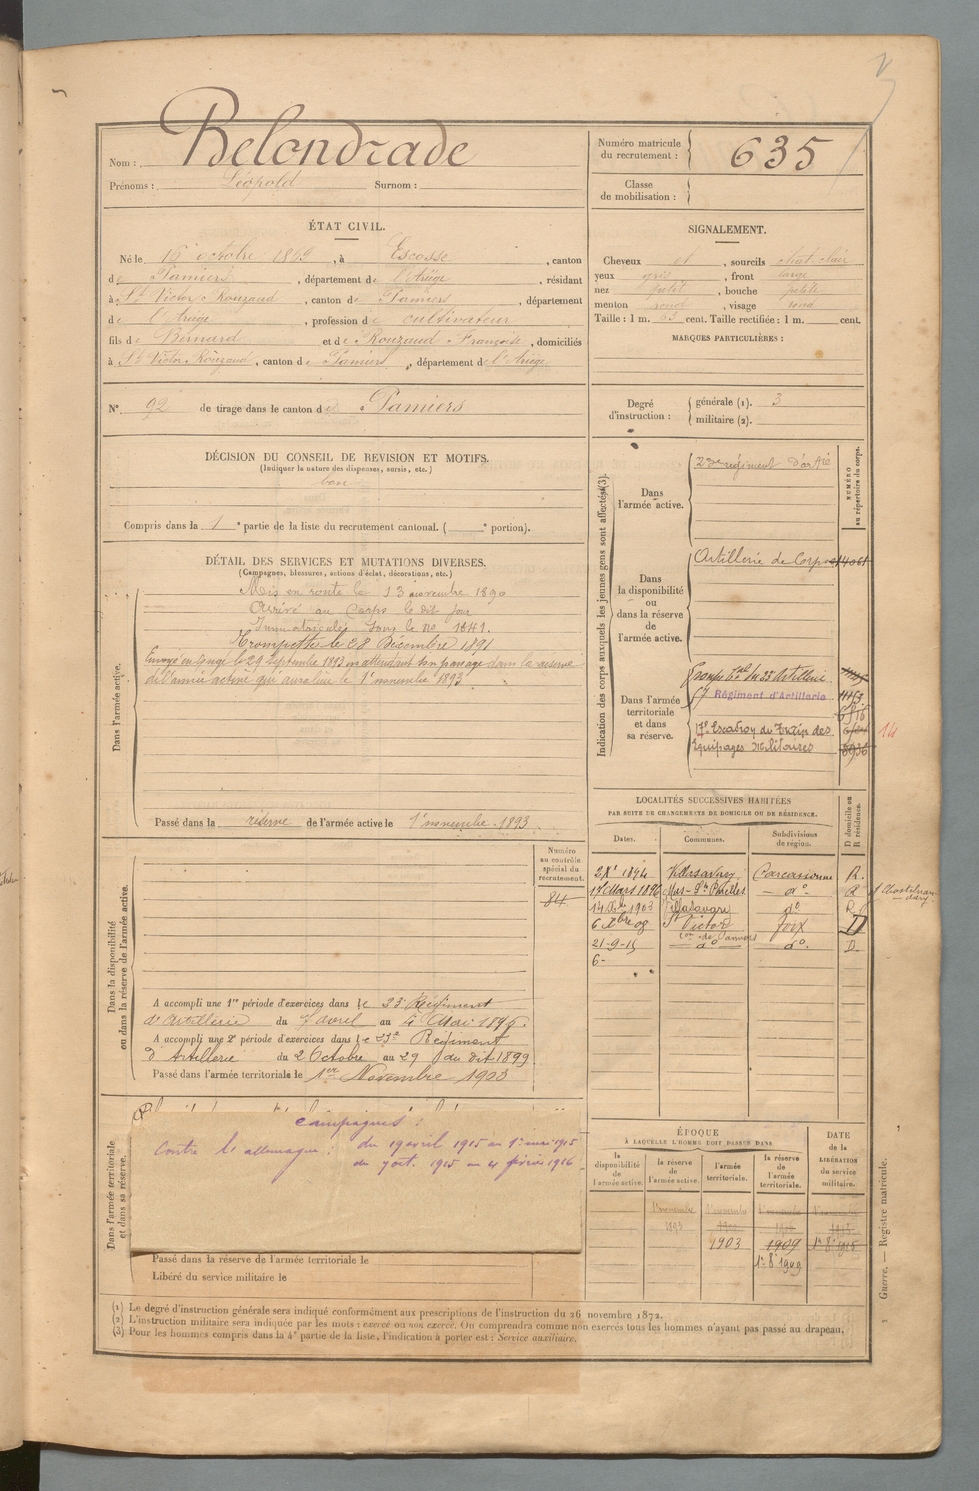 Nom : Belondrade
Prénoms : Léopold Surnom :
Numéro matricule du recrutement : 635
Classe de mobilisation :
ÉTAT CIVIL.
Né le 16 octobre 1869, à Escosse, canton
de Pamiers, département de l'Ariège, résidant
à St Victor Rouzaud, canton de Pamiers, département
de l'Ariège, profession de cultivateur
fils de Bernard et de Rouzaud Françoise, domiciliés
à St Victor Rouzaud, canton de Pamiers, département de l'Ariège
SIGNALEMENT.
Cheveux et, sourcils chat. clair
yeux gris, front large
nez petit, bouche petite
menton rond, visage rond
Taille : 1 m. 63 cent. Taille rectifiée : 1 m. cent.
MARQUES PARTICULIÈRES :
N° 92 de tirage dans le canton de Pamiers
Degré d'instruction : générale (1). 3
militaire (2).
DÉCISION DU CONSEIL DE REVISION ET MOTIFS.
(Indiquer la nature des dispenses, sursis, etc.)
bon
Compris dans la 1e partie de la liste du recrutement cantonal. ( e portion).
DÉTAIL DES SERVICES ET MUTATIONS DIVERSES.
(Campagnes, blessures, actions d'éclat, décorations, etc.)
Dans l'armée active.
Mis en route le 13 novembre 1890
Arrivé au Corps le dit jour
Immatriculé sous le no 1841.
Trompette le 28 Décembre 1891
Envoyé en congé le 29 septembre 1893 en attendant son passage dans la réserve
de l'armée active qui aura lieu le 1er novembre 1893
Passé dans la réserve de l'armée active le 1er novembre 1893
Indication des corps auxquels les jeunes gens sont affectés (3).
NUMÉRO au répertoire du corps.
Dans l'armée active.
23me régiment d'artie
Dans la disponibilité ou dans la réserve de l'armée active.
Artillerie de Corps
Dans l'armée territoriale et dans sa réserve.
Groupe tal du 23 Artillerie
57 Régiment d'Artillerie
17e Escadron du Train des
Equipages Militaires
14
LOCALITÉS SUCCESSIVES HABITÉES
PAR SUITE DE CHANGEMENTS DE DOMICILE OU DE RÉSIDENCE.
Dates. Communes. Subdivisions de région. D domicile ou R résidence.
2 Xe 1894 Villasavary Carcassonne R.
17 Mars 1896 Mas-Stes Puelles do R
14 1903 Villasavary do R
6 Xbre 08 St Victor Foix D
con de Pamiers
21-9-15 do do. D
6-
Dans la disponibilité ou dans la réserve de l'armée active.
Numéro au contrôle spécial du recrutement.
84
A accompli une 1re période d'exercices dans le 23e Régiment
d'Artillerie du 7 avril au 4 Mai 1896.
A accompli une 2e période d'exercices dans le 23e Régiment
d'Artillerie du 2 Octobre au 29 du dit 1899
Passé dans l'armée territoriale le 1er Novembre 1903
Dans l'armée territoriale et dans sa réserve.
Campagnes :
Contre l'allemagne : du 19 avril 1915 au 1er mai 1915
du 7 oct. 1915 au 4 février 1916
Passé dans la réserve de l'armée territoriale le
Libéré du service militaire le
ÉPOQUE
À LAQUELLE L'HOMME DOIT PASSER DANS
la disponibilité de l'armée active. la réserve de l'armée active. l'armée territoriale. la réserve de l'armée territoriale.
DATE de la LIBÉRATION du service militaire.
1er novembre 1893
1903 1909
1er 8e 1909
Guerre. — Registre matricule.
(1) Le degré d'instruction générale sera indiqué conformément aux prescriptions de l'instruction du 26 novembre 1872.
(2) L'instruction militaire sera indiquée par les mots : exercé ou non exercé. On comprendra comme non exercés tous les hommes n'ayant pas passé au drapeau.
(3) Pour les hommes compris dans la 4e partie de la liste, l'indication à porter est : Service auxiliaire.